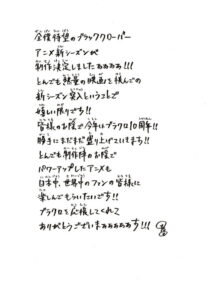 全僕待望のブラッククローバー
アニメ新シーズンが
制作決定しましたぁぁぁぁ!!!
とんでも熱量の映画を挟んでの
新シーズン突入ということで
嬉しい限りでち!!
皆様のお陰で今年はブラクロ10周年!!
勝手にまだまだ盛り上げていきまち!!
とんでも制作陣のお陰で
パワーアップしたアニメも
日本中、世界中のファンの皆様に
楽しんでもらいたいでち!
ブラクロを応援してくれて
ありがとうございまぁぁぁぁぁち!!!